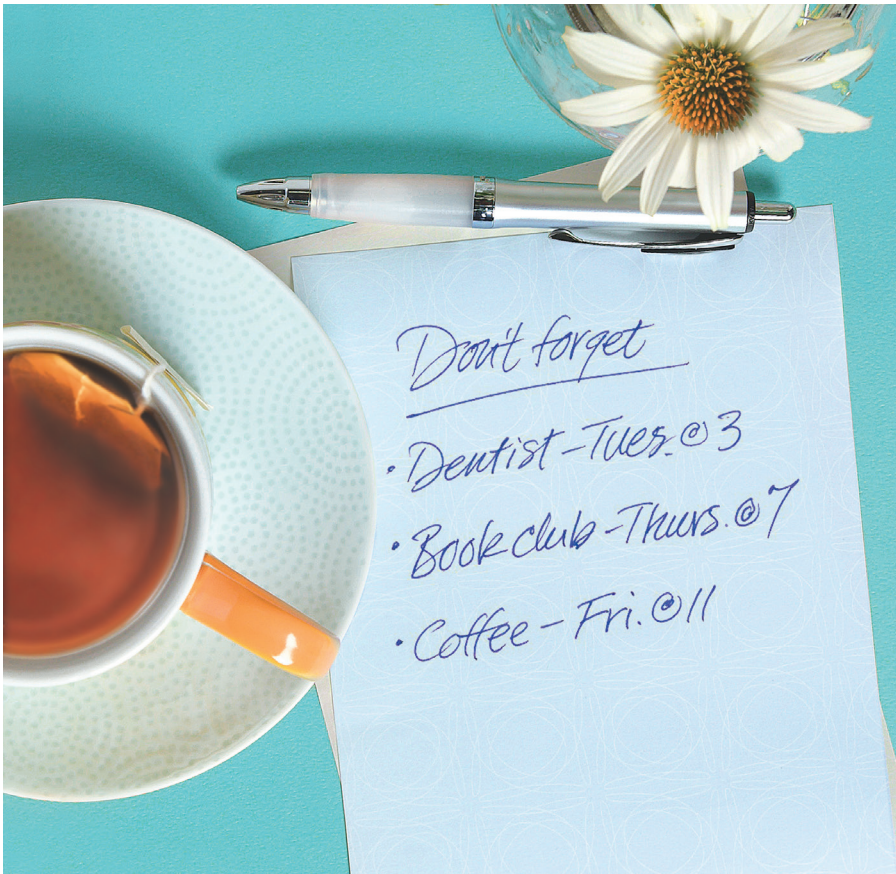 Don't forget
• Dentist – Tues. @ 3
• Book club – Thurs. @ 7
• Coffee – Fri. @ 11